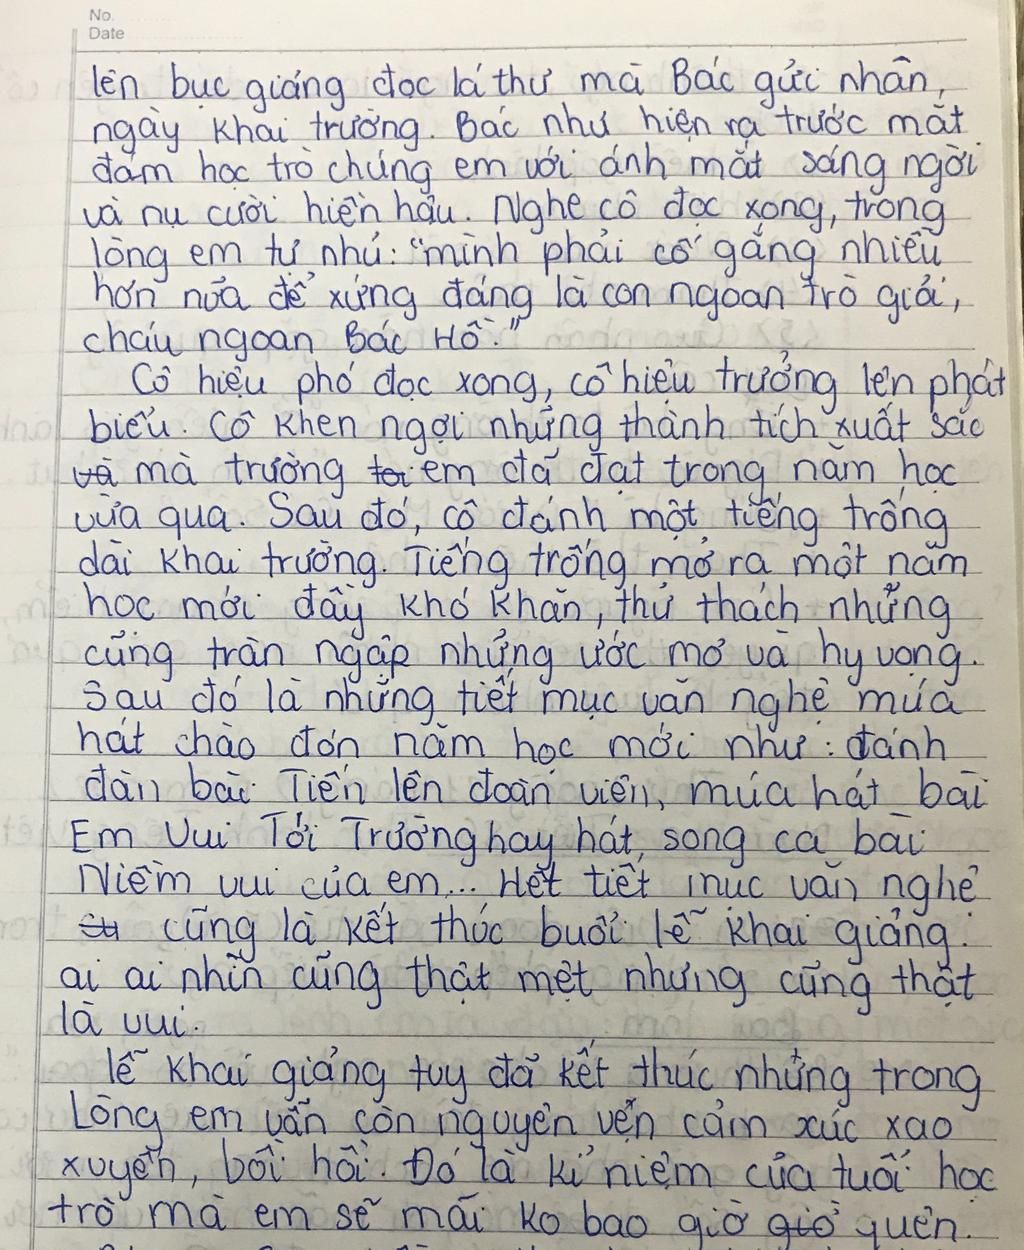 No.
Date
lên bục giảng đọc lá thư mà Bác gửi nhân,
ngày khai trường. Bác như hiện ra trước mắt
đám học trò chúng em với ánh mắt sáng ngời
và nụ cười hiền hậu. Nghe cô đọc xong, trong
lòng em tự nhủ: "mình phải cố gắng nhiều
hơn nữa để xứng đáng là con ngoan trò giỏi,
cháu ngoan Bác Hồ."
Cô hiệu phó đọc xong, cô hiệu trưởng lên phát
biểu. Cô khen ngợi những thành tích xuất sắc
và mà trường tơi em đã đạt trong năm học
vừa qua. Sau đó, cô đánh một tiếng trống
dài khai trường. Tiếng trống mở ra một năm
học mới đầy khó khăn, thử thách nhưng
cũng tràn ngập những ước mơ và hy vọng.
Sau đó là những tiết mục văn nghệ múa
hát chào đón năm học mới như: đánh
đàn bài Tiến lên đoàn viên, múa hát bài
Em Vui Tới Trường hay hát, song ca bài
Niềm vui của em... Hết tiết mục văn nghệ
cũng là kết thúc buổi lễ khai giảng.
ai ai nhìn cũng thật mệt nhưng cũng thật
là vui.
lễ khai giảng tuy đã kết thúc nhưng trong
Lòng em vẫn còn nguyên vẹn cảm xúc xao
xuyến, bồi hồi. Đó là kỉ niệm của tuổi học
trò mà em sẽ mãi ko bao giờ giờ quên.